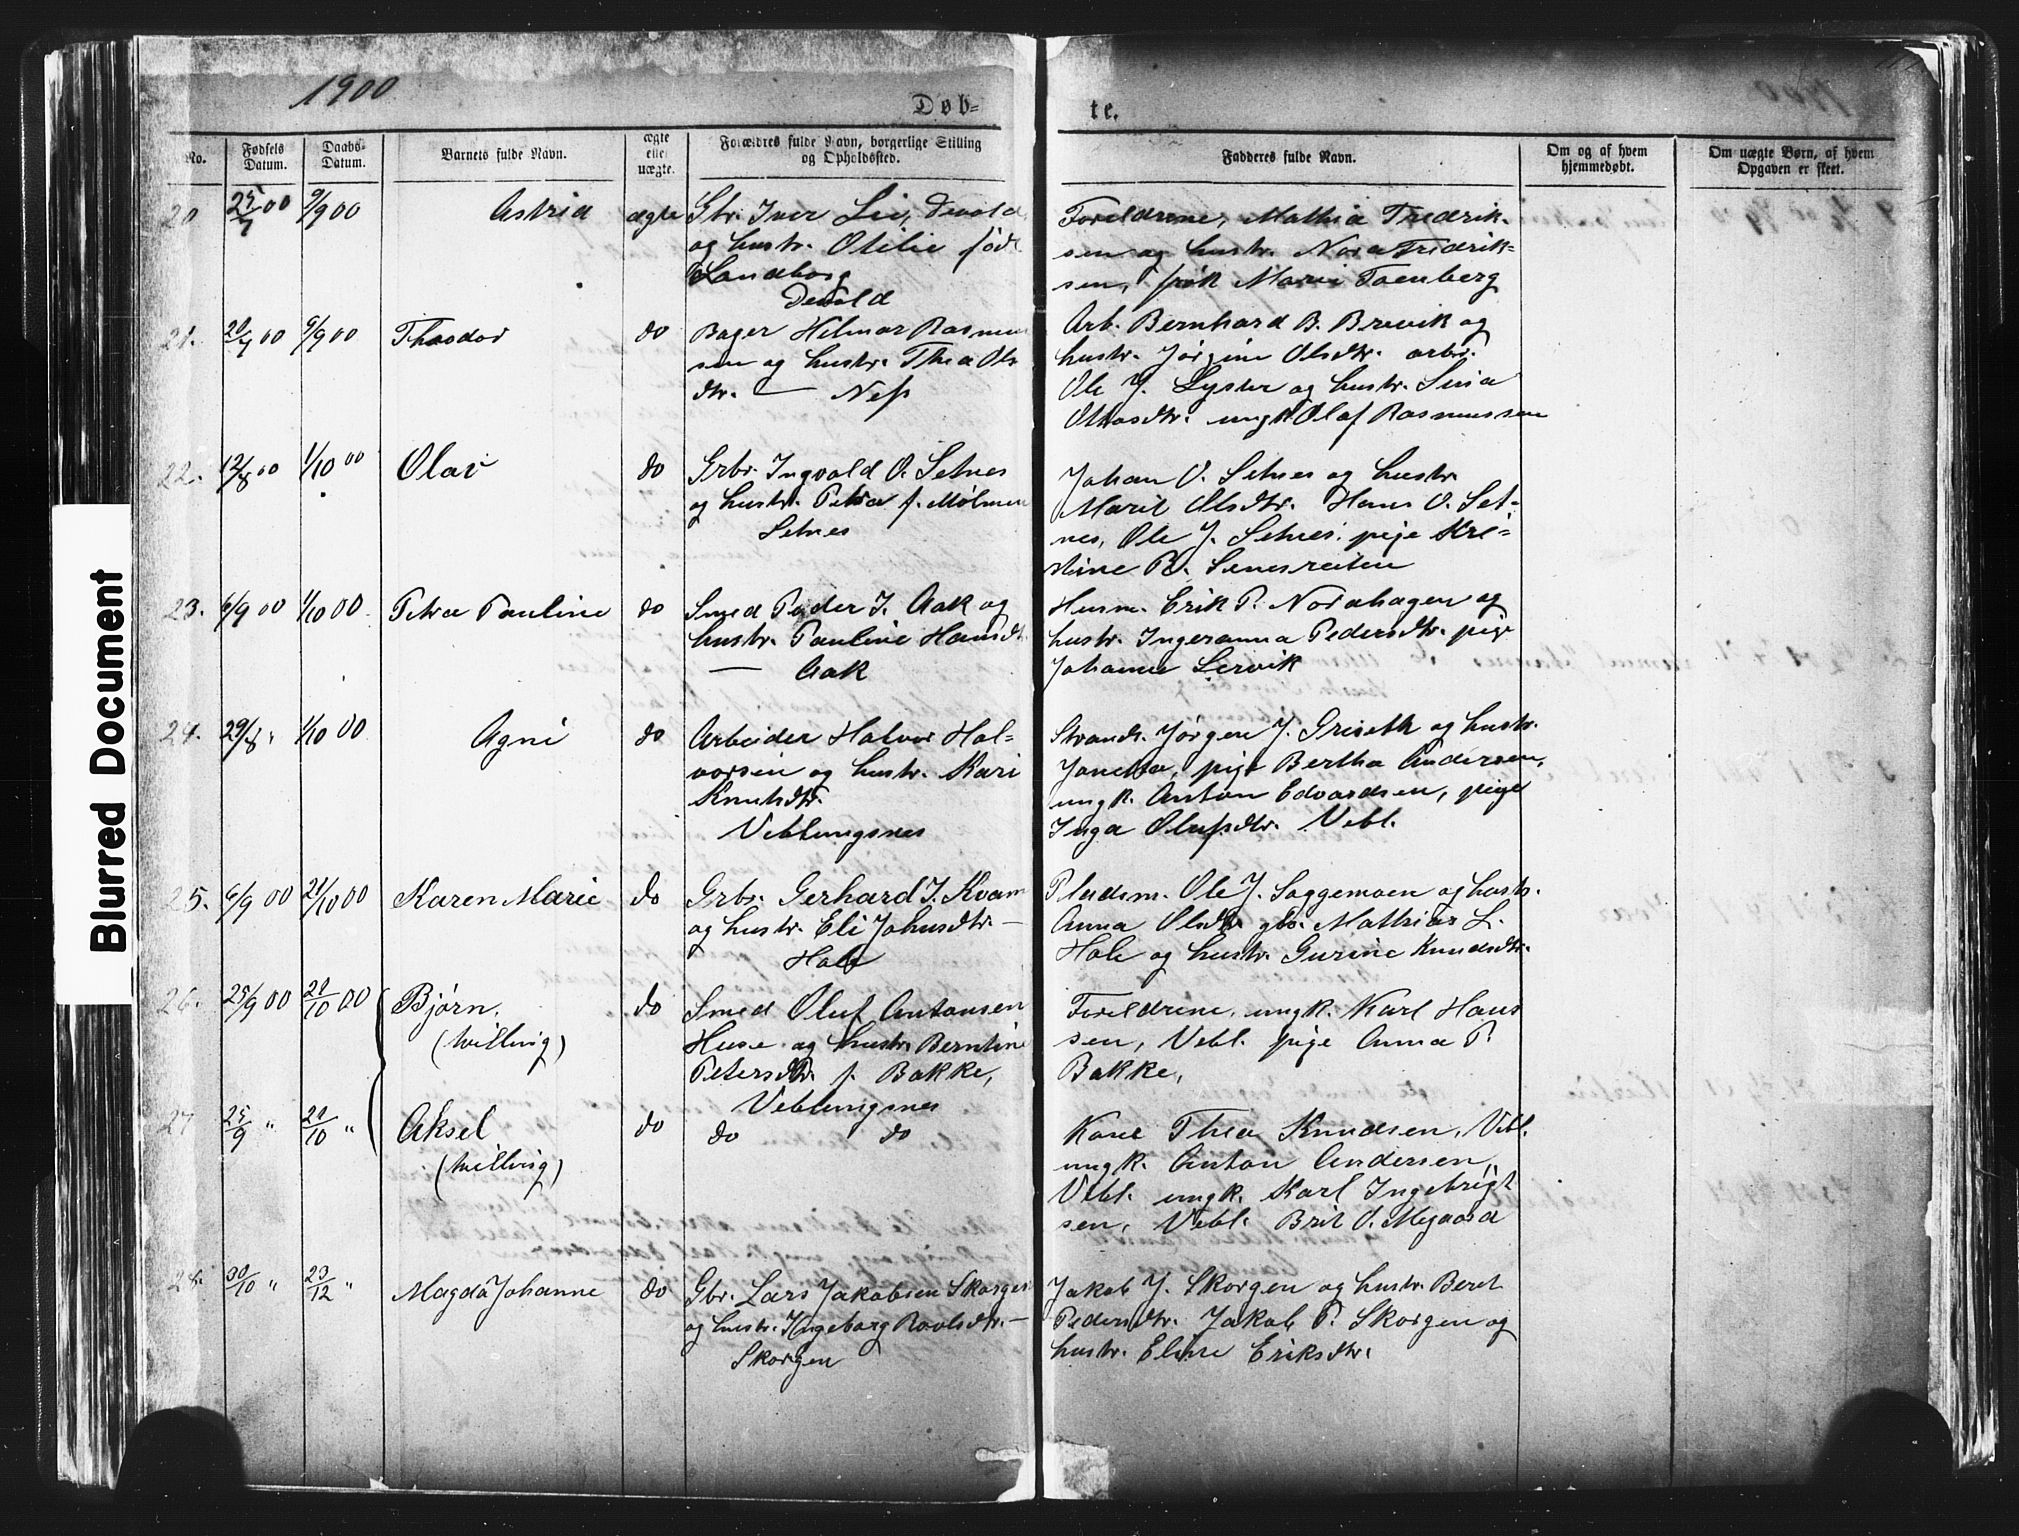 1900
Døb-
te.
No.
Fødsels Datum.
Daabs-Datum.
Barnets fulde Navn.
ægte eller uægte.
Forældres fulde Navn, borgerlige Stilling og Opholdssted.
Fadderes fulde Navn.
Om og af hvem hjemmedøbt.
Om uægte Børn, af hvem Opgaven er skeet.
20 25/7 00 9/9 00 Astrid ægte
Gbr. Iver Lie, Devold,
og hustr. Otilie født
Landborg
Devold
Foreldrene, Mathia Fredrik-
sen og hustr. Nora Fredrik-
sen, frøk Marie Toenberg
21. 20/7 00 9/9 00 Theodor do
Bager Hilmar Rasmus
sen og hustr. Thea Ols
dtr. — Nes
Arb. Bernhard B. Brevik og
hustr. Jørgine Olsdtr. arb.
Ole J. Lyster og hustr. Sina
ungk. Olaf Rasmussen
22. 12/8 00 1/10 00 Olav do
Grbr. Ingvald O. Setnes
og hustr. Petra f. Mølmen
Setnes
Johan O. Setnes og hustr.
Marit Olsdtr. Hans O. Set-
nes, Ole J. Setnes, pige Kri-
stine R. Senesreiten
23. 6/9 00 1/10 00 Petra Pauline do
Smed Peder J. Aak og
hustr. Pauline Hansdtr
— Aak
Husm. Erik P. Nordhagen og
hustr. Ingeranna Pedersdtr. pige
Johanne Lervik
24. 29/8 " 1/10 00 Agni do
Arbeider Halvor Hal-
vorsen og hustr. Kari
Knutsdtr.
Veblungsnes
Strands. Jørgen J. Griseth og hustr.
Janetta, pige Bertha Andersen,
ungk. Anton Edvardsen, pige
Inga Olufsdtr. Vebl.
25. 6/9 00 21/10 00 Karen Marie do
Grbr. Gerhard J. Kvam
og hustr. Eli Johnsdtr. —
Hole
Pladsm. Ole J. Soggemoen og hustr.
Anna Olsdtr. gbr. Mathias L.
Hole og hustr. Gurine Knudsdtr.
26. 25/9 00 21/10 00 Bjørn.
(tvilling)
do
Smed Oluf Antonsen
Huse og hustr. Berntine
Petersdtr. f. Bakke,
Veblungsnes
Foreldrene, ungk. Karl Hans
sen, Vebl. pige Anna P.
Bakke,
27 25/9 " 21/10 " Aksel
(tvilling)
do do do
Kone Thea Knudsen, Vebl.
ungk. Anton Andersen,
Vebl. ungk. Karl Ingebrigt
sen, Vebl. Brit O. Mjaard
28. 30/10 " 23/12 " Magda Johanne do
Gbr. Lars Jakobsen Skorgen
og hustr. Ingeborg Roalsdtr. —
Skorgen
Jakob J. Skorgen og hustr. Beret
Pedersdtr. Jakob P. Skorgen og
hustr. Eline Eriksdtr.
Blurred Document